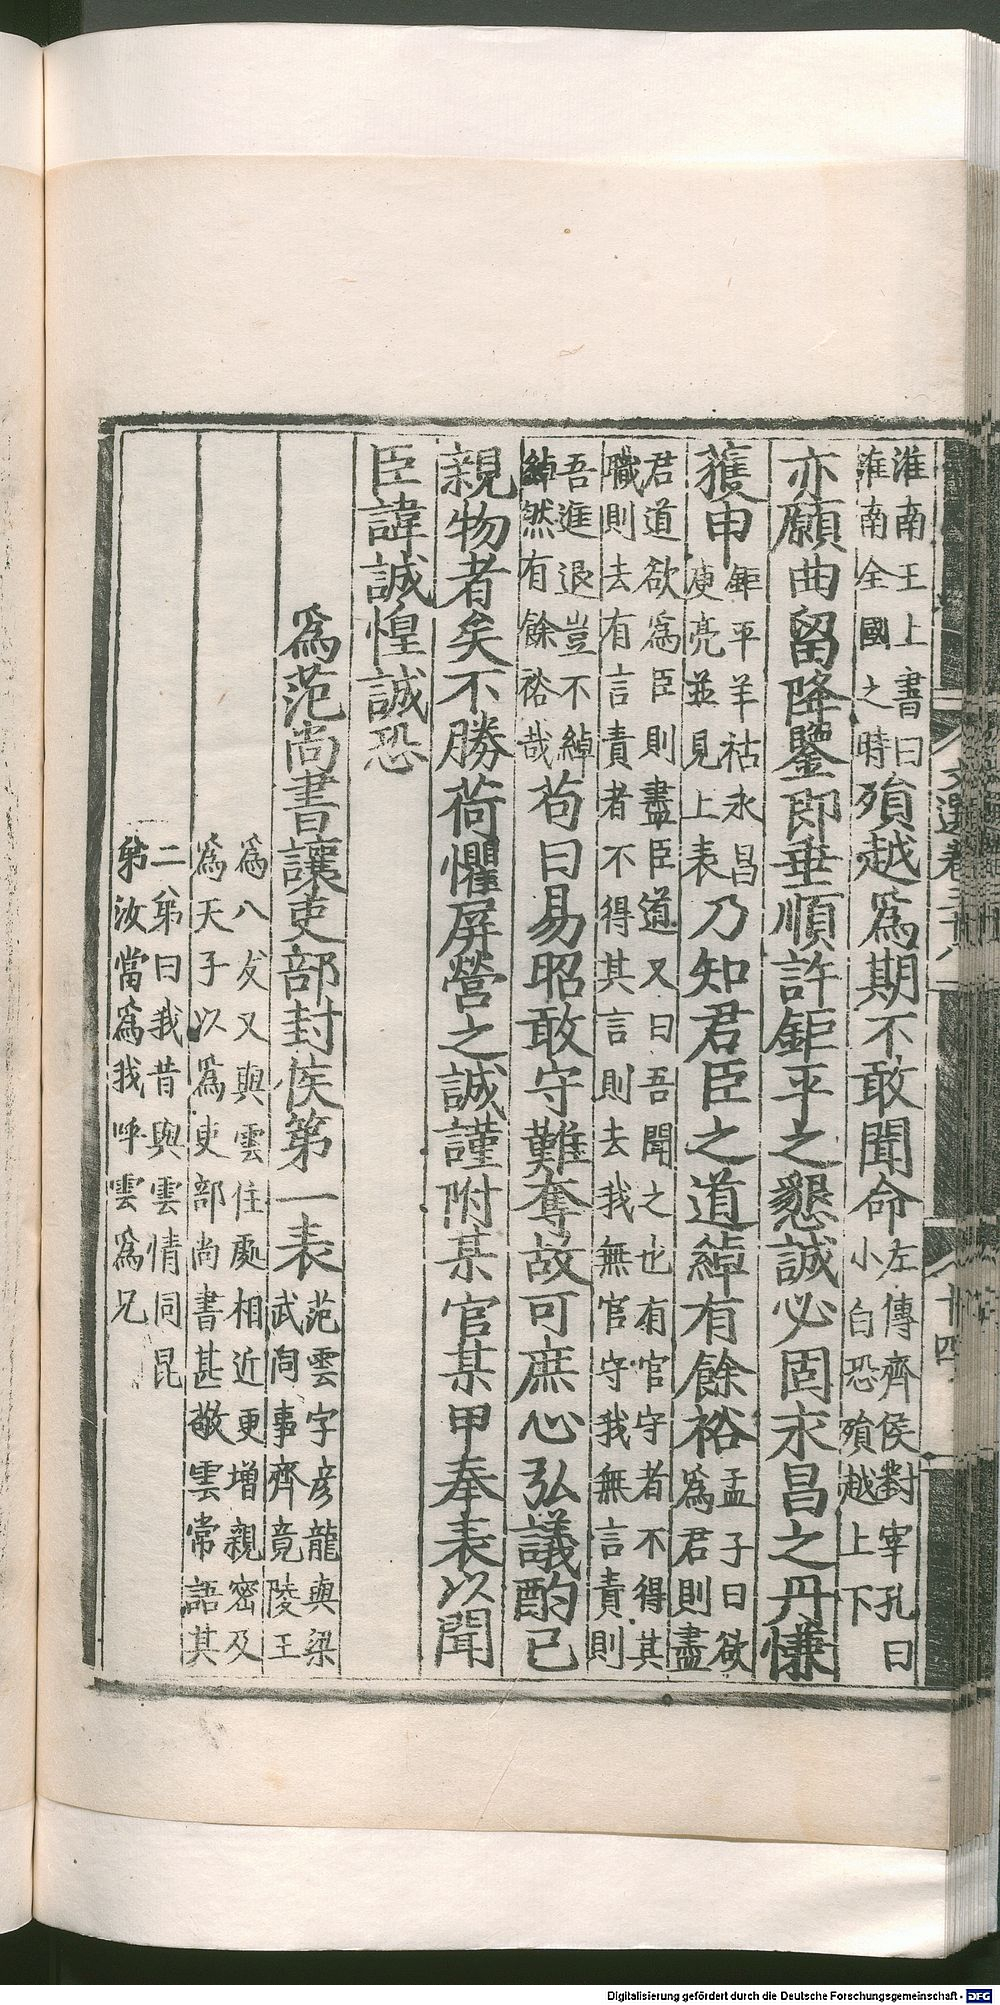 淮南王上書曰
淮南全國之時
殞越爲期不敢聞命
左傳齊侯對宰孔曰
小白恐殞越上下
亦願曲留降鑒即垂順許鉅平之懇誠必固永昌之丹慊
獲申
鉅平羊祜永昌
庾亮並見上表
乃知君臣之道綽有餘裕
孟子曰欲
爲君則盡
君道欲爲臣則盡臣道又曰吾聞之也有官守者不得其
職則去有言責者不得其言則去我無官守我無言責則
吾進退豈不綽
綽然有餘裕哉
苟曰易昭敢守難奪故可庶心弘議酌己
親物者矣不勝荷懼屏營之誠謹附某官某甲奉表以聞
臣諱誠惶誠恐
爲范尚書讓吏部封侯第一表
范雲字彥龍與梁
武同事齊竟陵王
爲八友又與雲住處相近更增親密及
爲天子以爲吏部尚書甚敬雲常語其
二弟曰我昔與雲情同昆
弟汝當爲我呼雲爲兄
文選卷三十八
十四
Digitalisierung gefördert durch die Deutsche Forschungsgemeinschaft - DFG